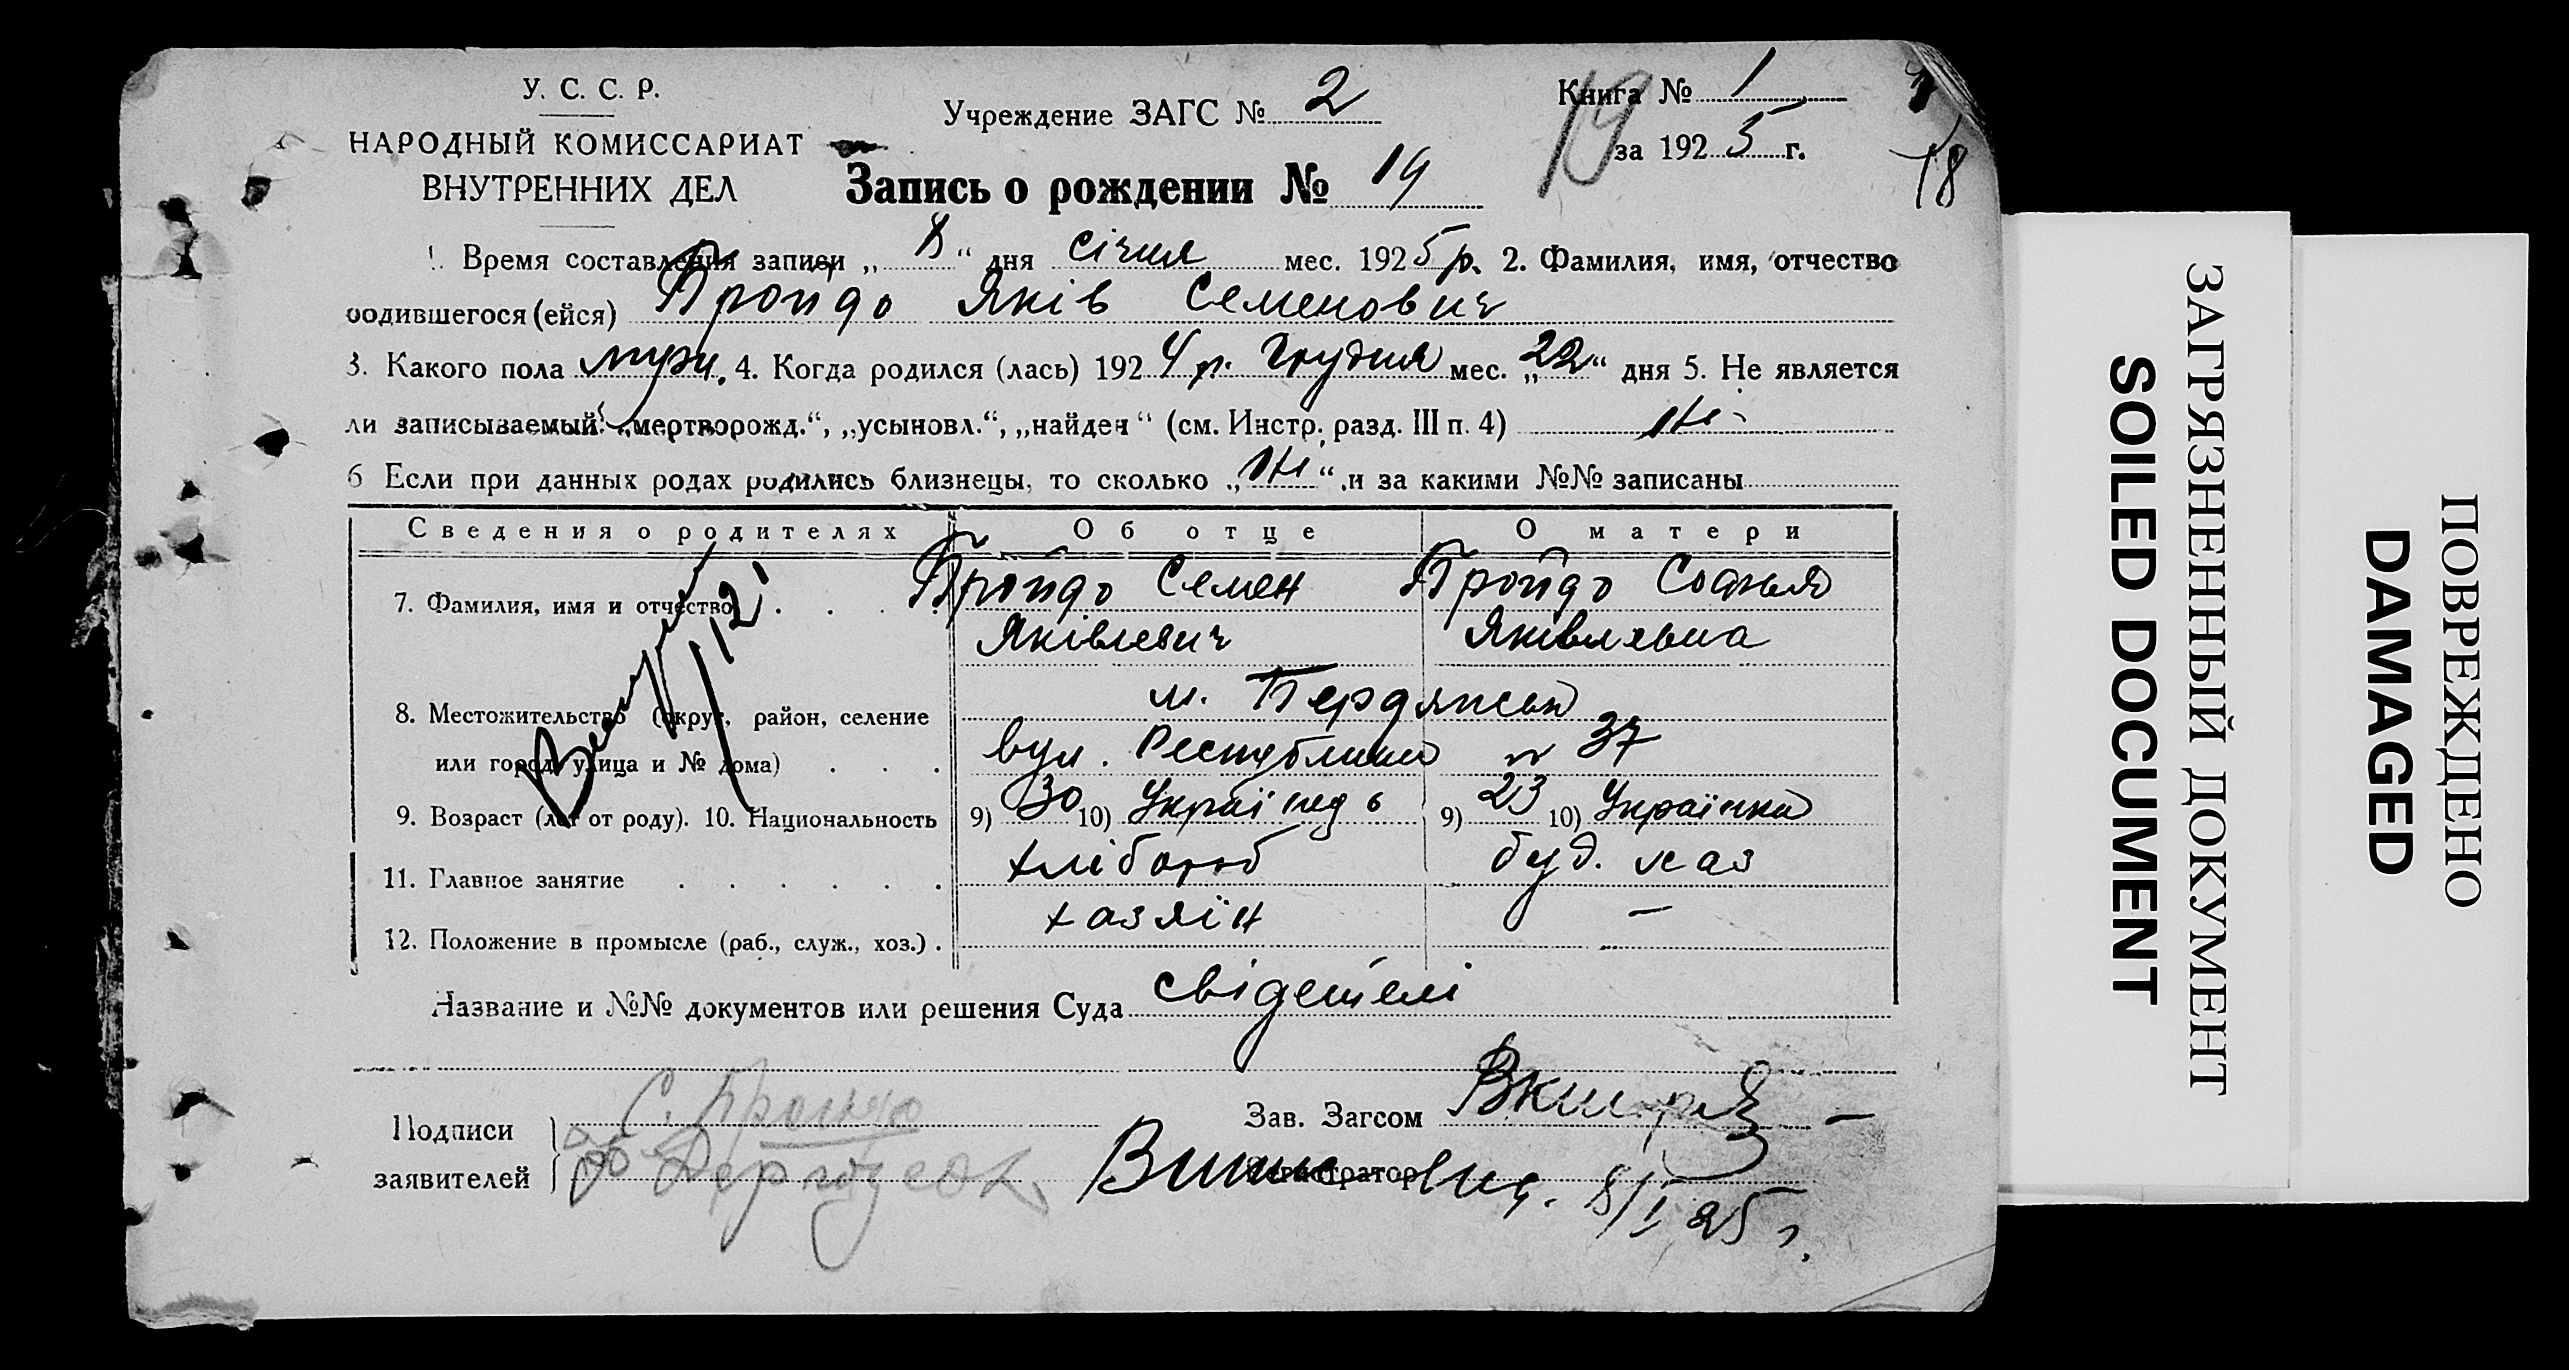 У. С. С. Р.
НАРОДНЫЙ КОМИССАРИАТ
ВНУТРЕННИХ ДЕЛ
Учреждение ЗАГС № 2
Книга № 1
за 1925 г.
19
18
Запись о рождении № 19
1. Время составления записи „8“ дня січня мес. 1925 р. 2. Фамилия, имя, отчество
родившегося (ейся) Пройдо Яків Семенович
3. Какого пола муж. 4. Когда родился (лась) 1924 р. Грудня мес. „22“ дня 5. Не является
ли записываемый: „мертворожд.“, „усыновл.“, „найден“ (см. Инстр. разд. III п. 4) Ні
6 Если при данных родах родились близнецы, то сколько „Ні“ и за какими №№ записаны
Сведения о родителях Об отце О матери
7. Фамилия, имя и отчество Пройдо Семен Пройдо Софья
Яківлевич Яківлевна
8. Местожительство (округ, район, селение м. Бердянськ
или город, улица и № дома) вул. Республики № 37
9. Возраст (лет от роду). 10. Национальность 9) 30 10) Українець 9) 23 10) Українка
11. Главное занятие хлібороб буд. хаз
12. Положение в промысле (раб., служ., хоз.) хазяїн —
Название и №№ документов или решения Суда свідетелі
Подписи
заявителей
С. Пройдо
Зав. Загсом
Регистратор
8/I 25 г.
ЗАГРЯЗНЕННЫЙ ДОКУМЕНТ
SOILED DOCUMENT
ПОВРЕЖДЕНО
DAMAGED